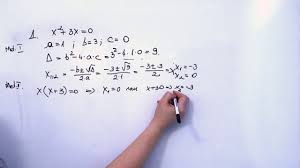 1. x² + 3x = 0
Мет. I a = 1 ; b = 3 ; c = 0
Δ = b² - 4·a·c = 3² - 4·1·0 = 9.
x₁,₂ = (-b ± √Δ)/(2·a) = (-3 ± √9)/(2·1) = (-3 ± 3)/2 x₁ = -3 x₂ = 0
Мет. II x(x + 3) = 0 ⇒ x₁ = 0 или x + 3 = 0 ⇒ x₂ = -3